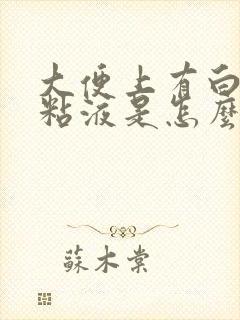 大便上有白
粘液是怎麼
蘇木棠